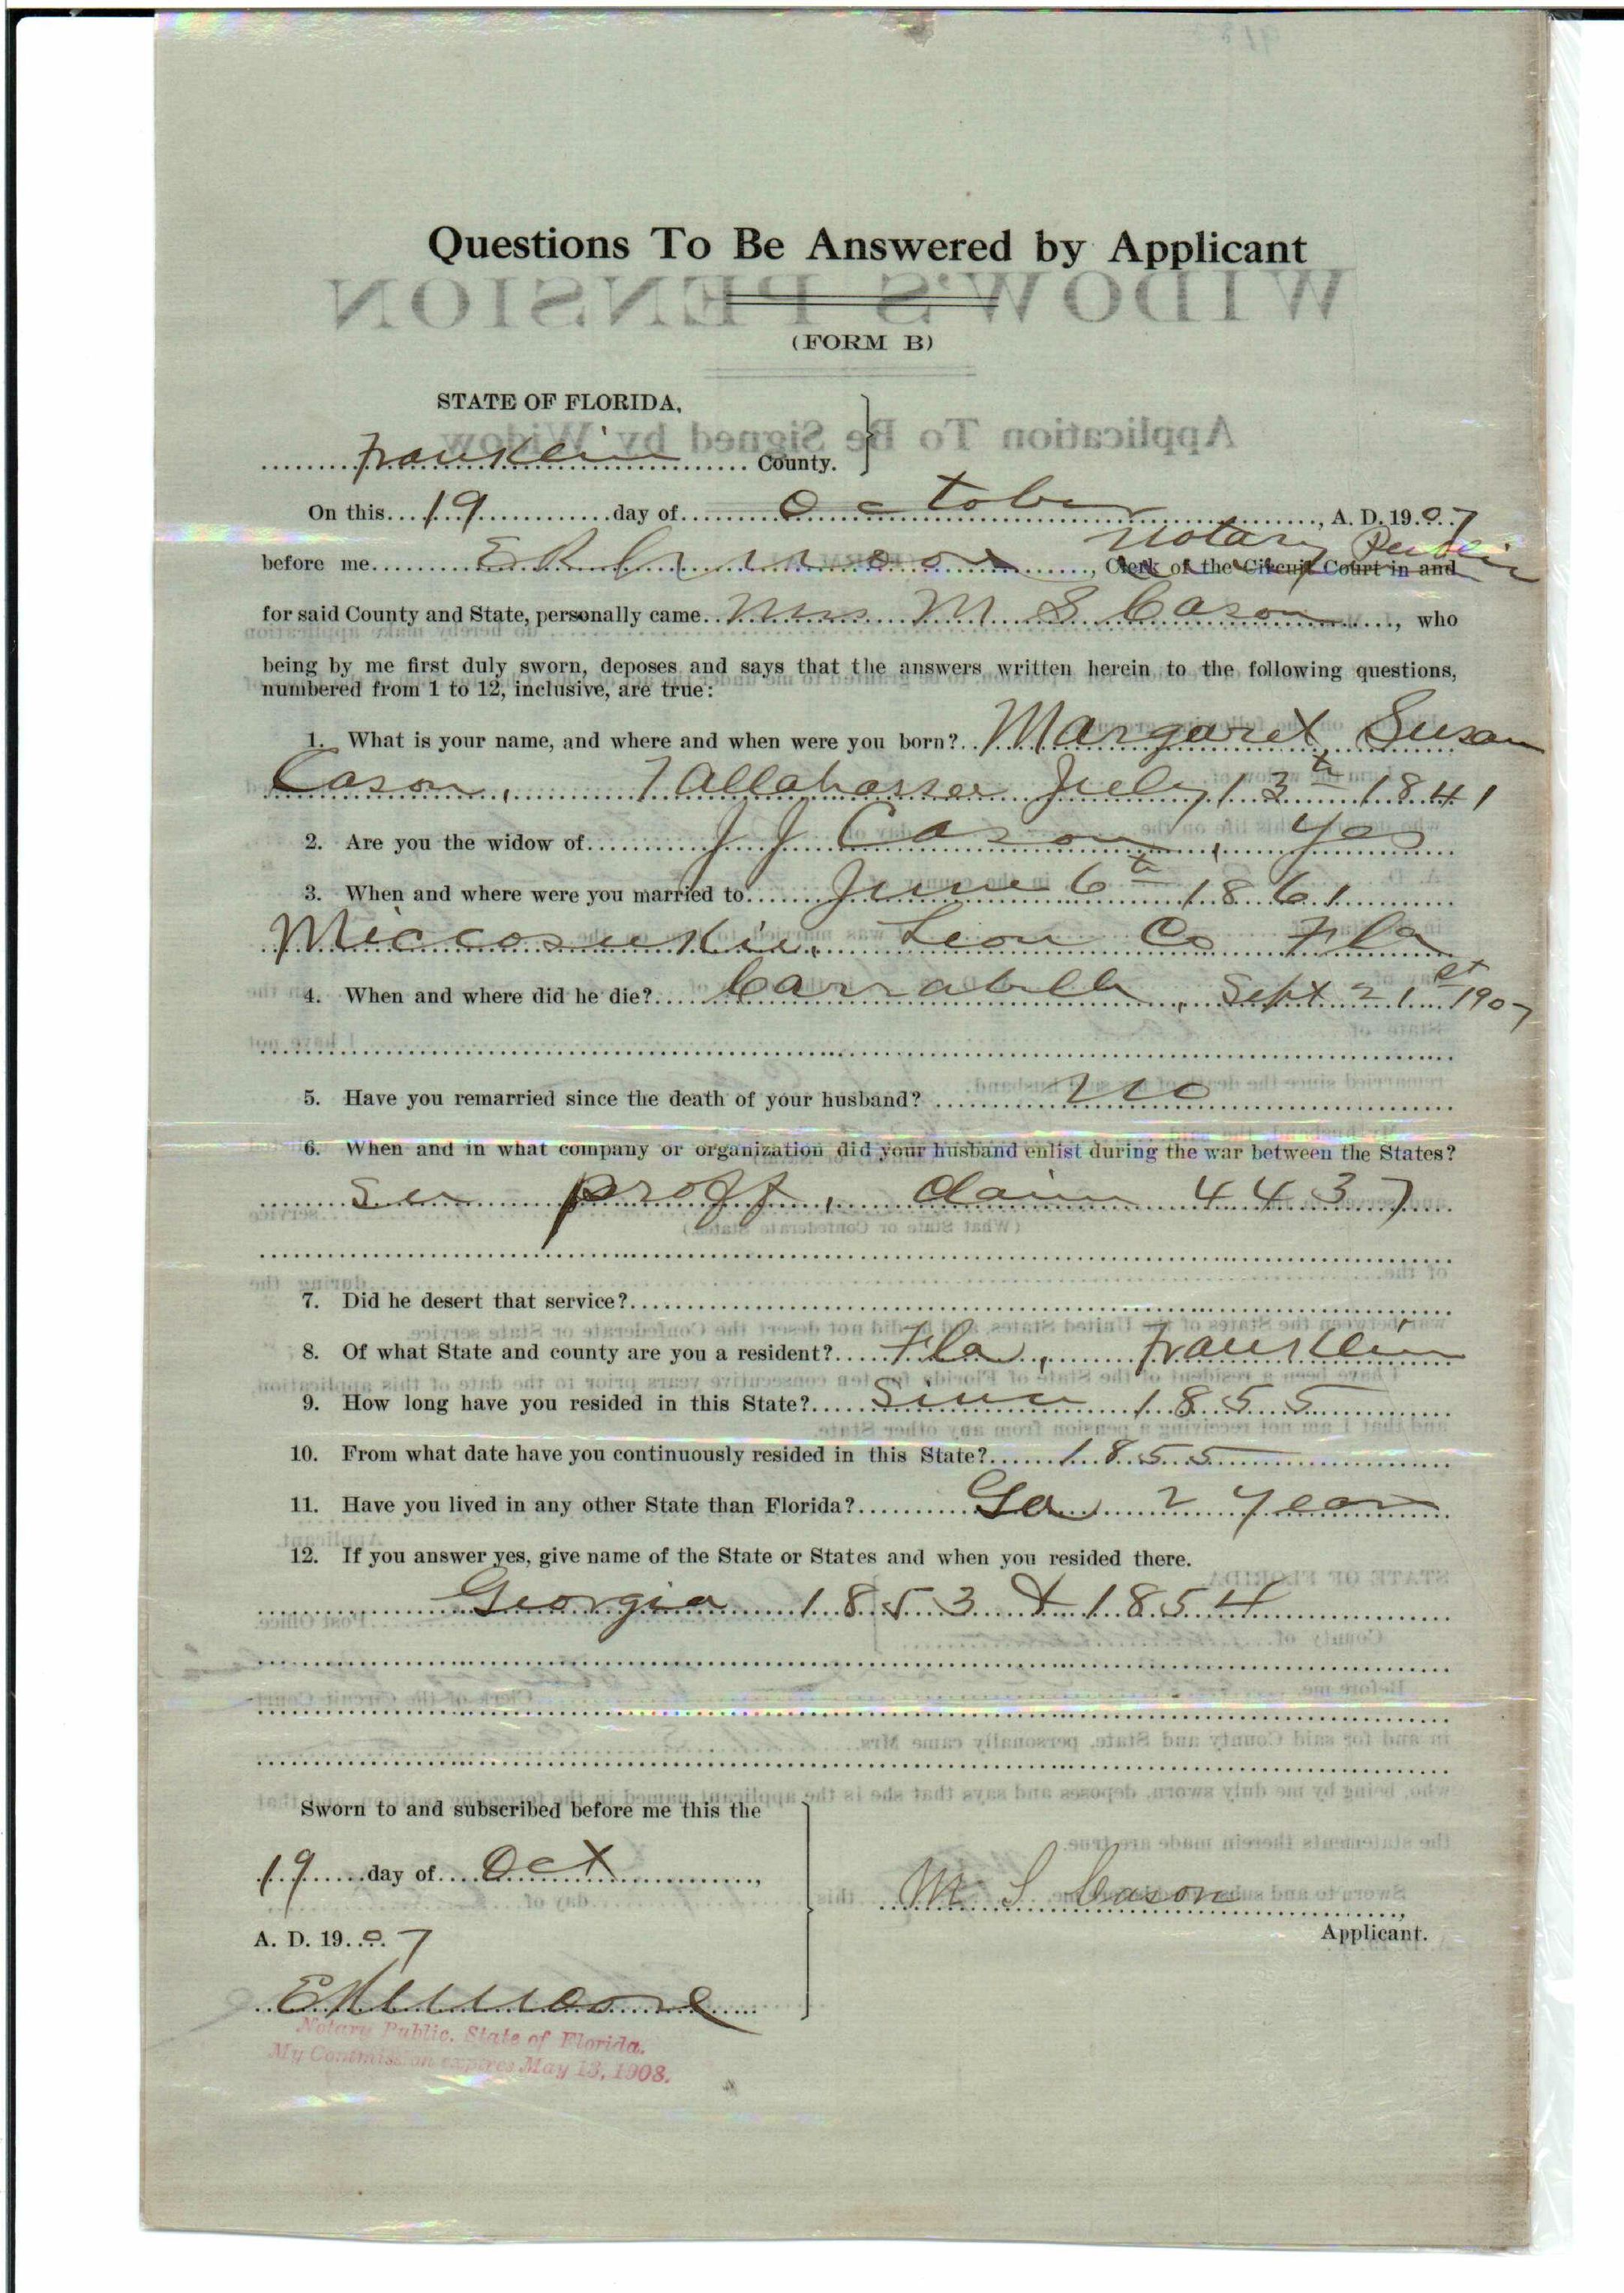 Questions To Be Answered by Applicant
(FORM B)
STATE OF FLORIDA,
Franklin County.
On this 19 day of October, A. D. 1907
Notary Public
before me, Clerk of the Circuit Court in and
for said County and State, personally came Mrs M S Cason, who
being by me first duly sworn, deposes and says that the answers written herein to the following questions,
numbered from 1 to 12, inclusive, are true:
1. What is your name, and where and when were you born? Margaret Susan
Cason, Tallahassee July 13th 1841
2. Are you the widow of J J Cason, Yes
3. When and where were you married to June 6th 1861
Miccosukie, Leon Co Fla
4. When and where did he die? Carrabelle, Sept 21st 1907
5. Have you remarried since the death of your husband? no
6. When and in what company or organization did your husband enlist during the war between the States?
See proff, claim 4437
7. Did he desert that service?
8. Of what State and county are you a resident? Fla, Franklin
9. How long have you resided in this State? Since 1855
10. From what date have you continuously resided in this State? 1855
11. Have you lived in any other State than Florida? Ga 2 year
12. If you answer yes, give name of the State or States and when you resided there.
Georgia 1853 & 1854
Sworn to and subscribed before me this the
19 day of Oct,
A. D. 1907
M S Cason,
Applicant.
Notary Public, State of Florida.
My Commission expires May 13, 1908.